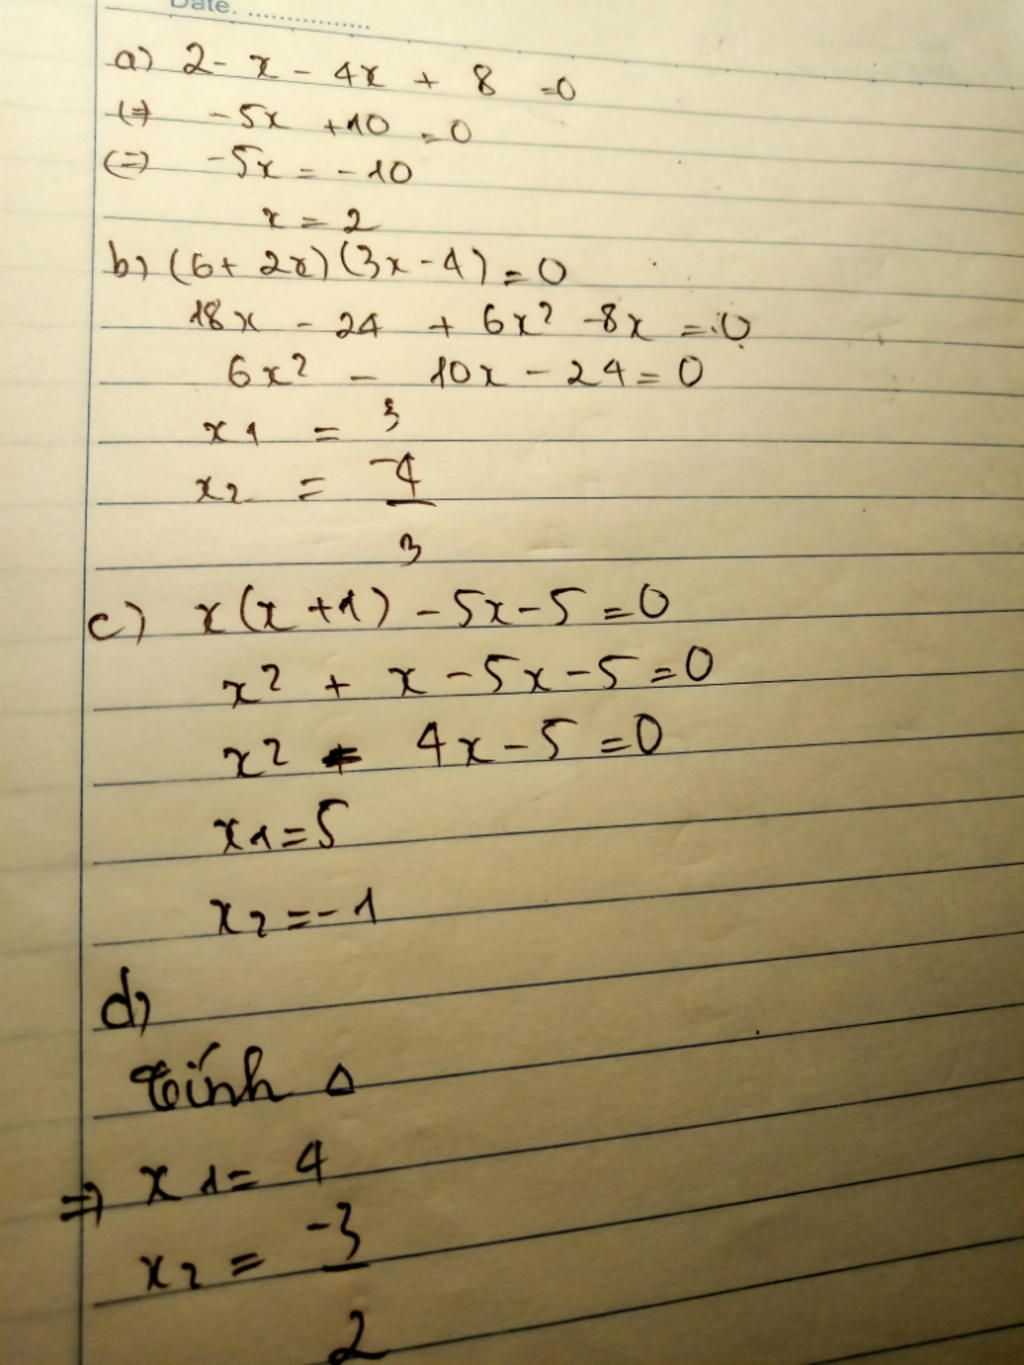 Date. ................
a) 2 - x - 4x + 8 = 0
(=) -5x + 10 = 0
(=) -5x = -10
x = 2
b) (6 + 2x)(3x - 4) = 0
18x - 24 + 6x² - 8x = 0
6x² - 10x - 24 = 0
x1 = 3
x2 = -4/3
c) x(x + 1) - 5x - 5 = 0
x² + x - 5x - 5 = 0
x² - 4x - 5 = 0
x1 = 5
x2 = -1
d)
Tính Δ
=> x1 = 4
x2 = -3/2